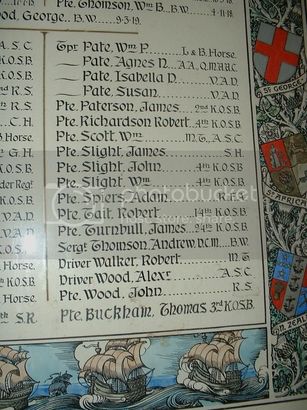 Pte. Thomson, Wm B... B.W. 4-11-18.
ood, George... B.W... 9-3-19.
A.S.C.
K.O.S.B.
K.O.S.B.
nd R.S.
C.H.
B Horse.
G.H.
K.O.S.B.
K.O.S.B.
der Regt.
V.A.D.
V.A.D.
K.O.S.B.
Horse.
K.O.S.B.
Horse.
th S.R
Tpr Pate, Wm P. L & B. Horse.
„ Pate, Agnes N. A.A., Q.M.A.A.C.
„ Pate, Isabella D. V.A.D.
„ Pate, Susan V.A.D.
Pte. Paterson, James 2nd K.O.S.B.
Pte. Richardson Robert 4th K.O.S.B.
Pte. Scott, Wm M.T., A.S.C.
Pte. Slight, James S.H.
Pte. Slight, John 4th K.O.S.B.
Pte. Slight, Wm 4th K.O.S.B.
Pte. Spiers, Adam R.F.S.
Pte. Tait, Robert 14th K.O.S.B.
Pte. Turnbull, James 24th K.O.S.B.
Sergt Thomson, Andrew, D.C.M. B.W.
Driver Walker, Robert M.T.
Driver Wood, Alexr A.S.C.
Pte. Wood, John R.S.
Pte. Buckham, Thomas 3rd K.O.S.B.
ST GEORGE
photobucket